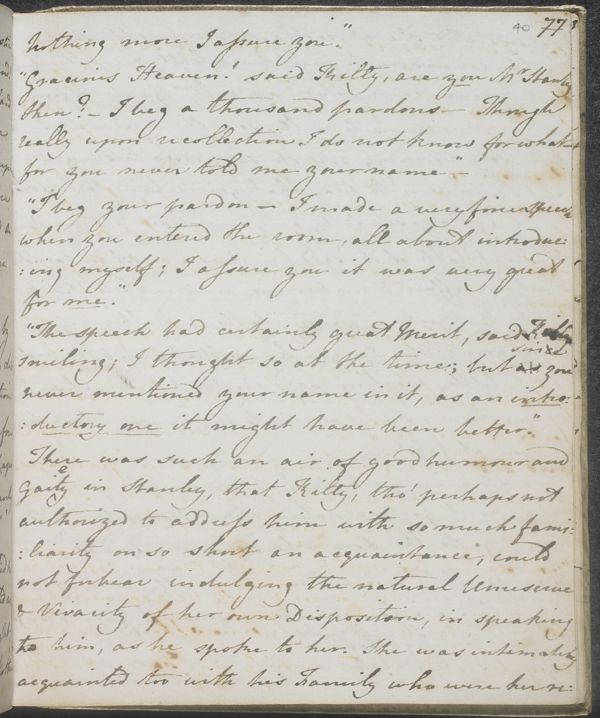 40 77
nothing more I assure you."
"Gracious Heaven! said Kitty, are you Mr Stanley
then? – I beg a thousand pardons – Though
really upon recollection I do not know for what –
for you never told me your name" –
"I beg your pardon – I made a very fine speech
when you entered the room, all about introduc:
:ing myself; I assure you it was very great
for me."
"The speech had certainly great Merit, said Kitty
smiling; I thought so at the time; but since you
never mentioned your name in it, as an intro:
:ductory one it might have been better."
There was such an air of good humour and
Gaiety in Stanley, that Kitty, tho' perhaps not
authorized to address him with so much fami:
:liarity on so short an acquaintance, could
not forbear indulging the natural Unreserve
& Vivacity of her own Disposition, in speaking
to him, as he spoke to her. She was intimately
acquainted too with his Family who were her re: